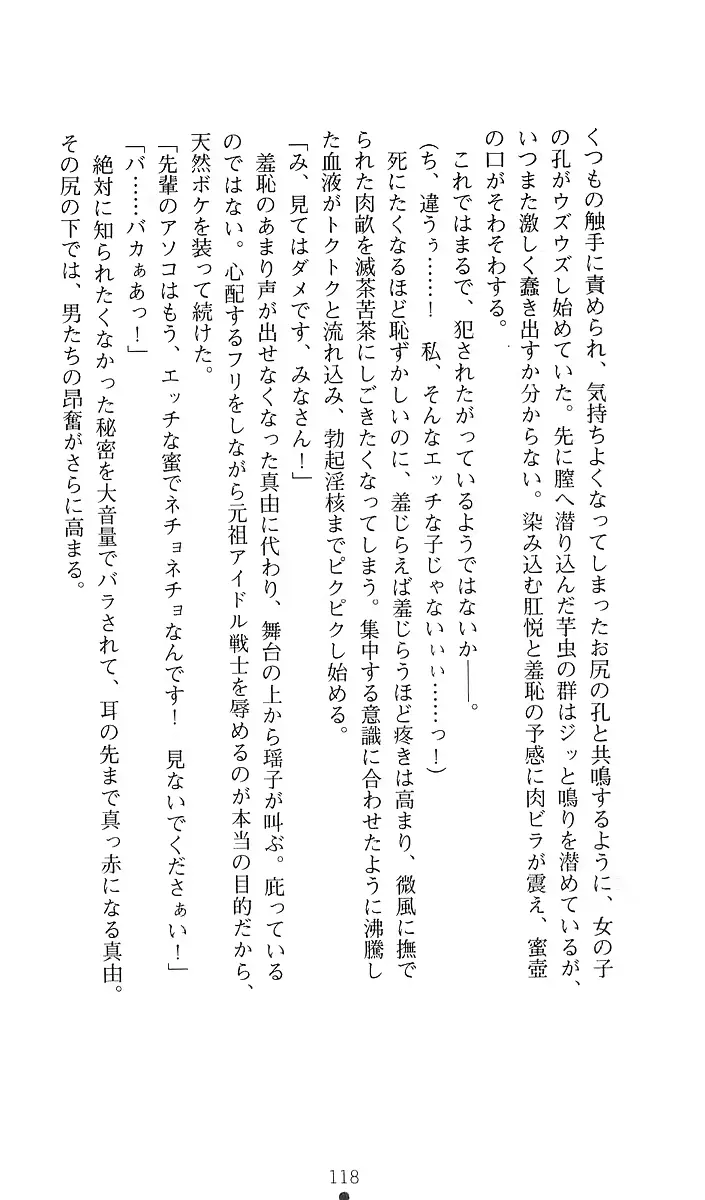 くつもの触手に責められ、気持ちよくなってしまったお尻の孔と共鳴するように、女の子
の孔がウズウズし始めていた。先に膣へ潜り込んだ芋虫の群はジッと鳴りを潜めているが、
いつまた激しく蠢き出すか分からない。染み込む肛悦と羞恥の予感に肉ビラが震え、蜜壺
の口がそわそわする。
これではまるで、犯されたがっているようではないか――。
(ち、違うぅ……！　私、そんなエッチな子じゃないぃぃ……っ！)
死にたくなるほど恥ずかしいのに、羞じらえば羞じらうほど疼きは高まり、微風に撫で
られた肉畝を滅茶苦茶にしごきたくなってしまう。集中する意識に合わせたように沸騰し
た血液がトクトクと流れ込み、勃起淫核までピクピクし始める。
「み、見てはダメです、みなさん！」
羞恥のあまり声が出せなくなった真由に代わり、舞台の上から瑶子が叫ぶ。庇っている
のではない。心配するフリをしながら元祖アイドル戦士を辱めるのが本当の目的だから、
天然ボケを装って続けた。
「先輩のアソコはもう、エッチな蜜でネチョネチョなんです！　見ないでくださぁい！」
「バ……バカぁあっ！」
絶対に知られたくなかった秘密を大音量でバラされて、耳の先まで真っ赤になる真由。
その尻の下では、男たちの昂奮がさらに高まる。
118